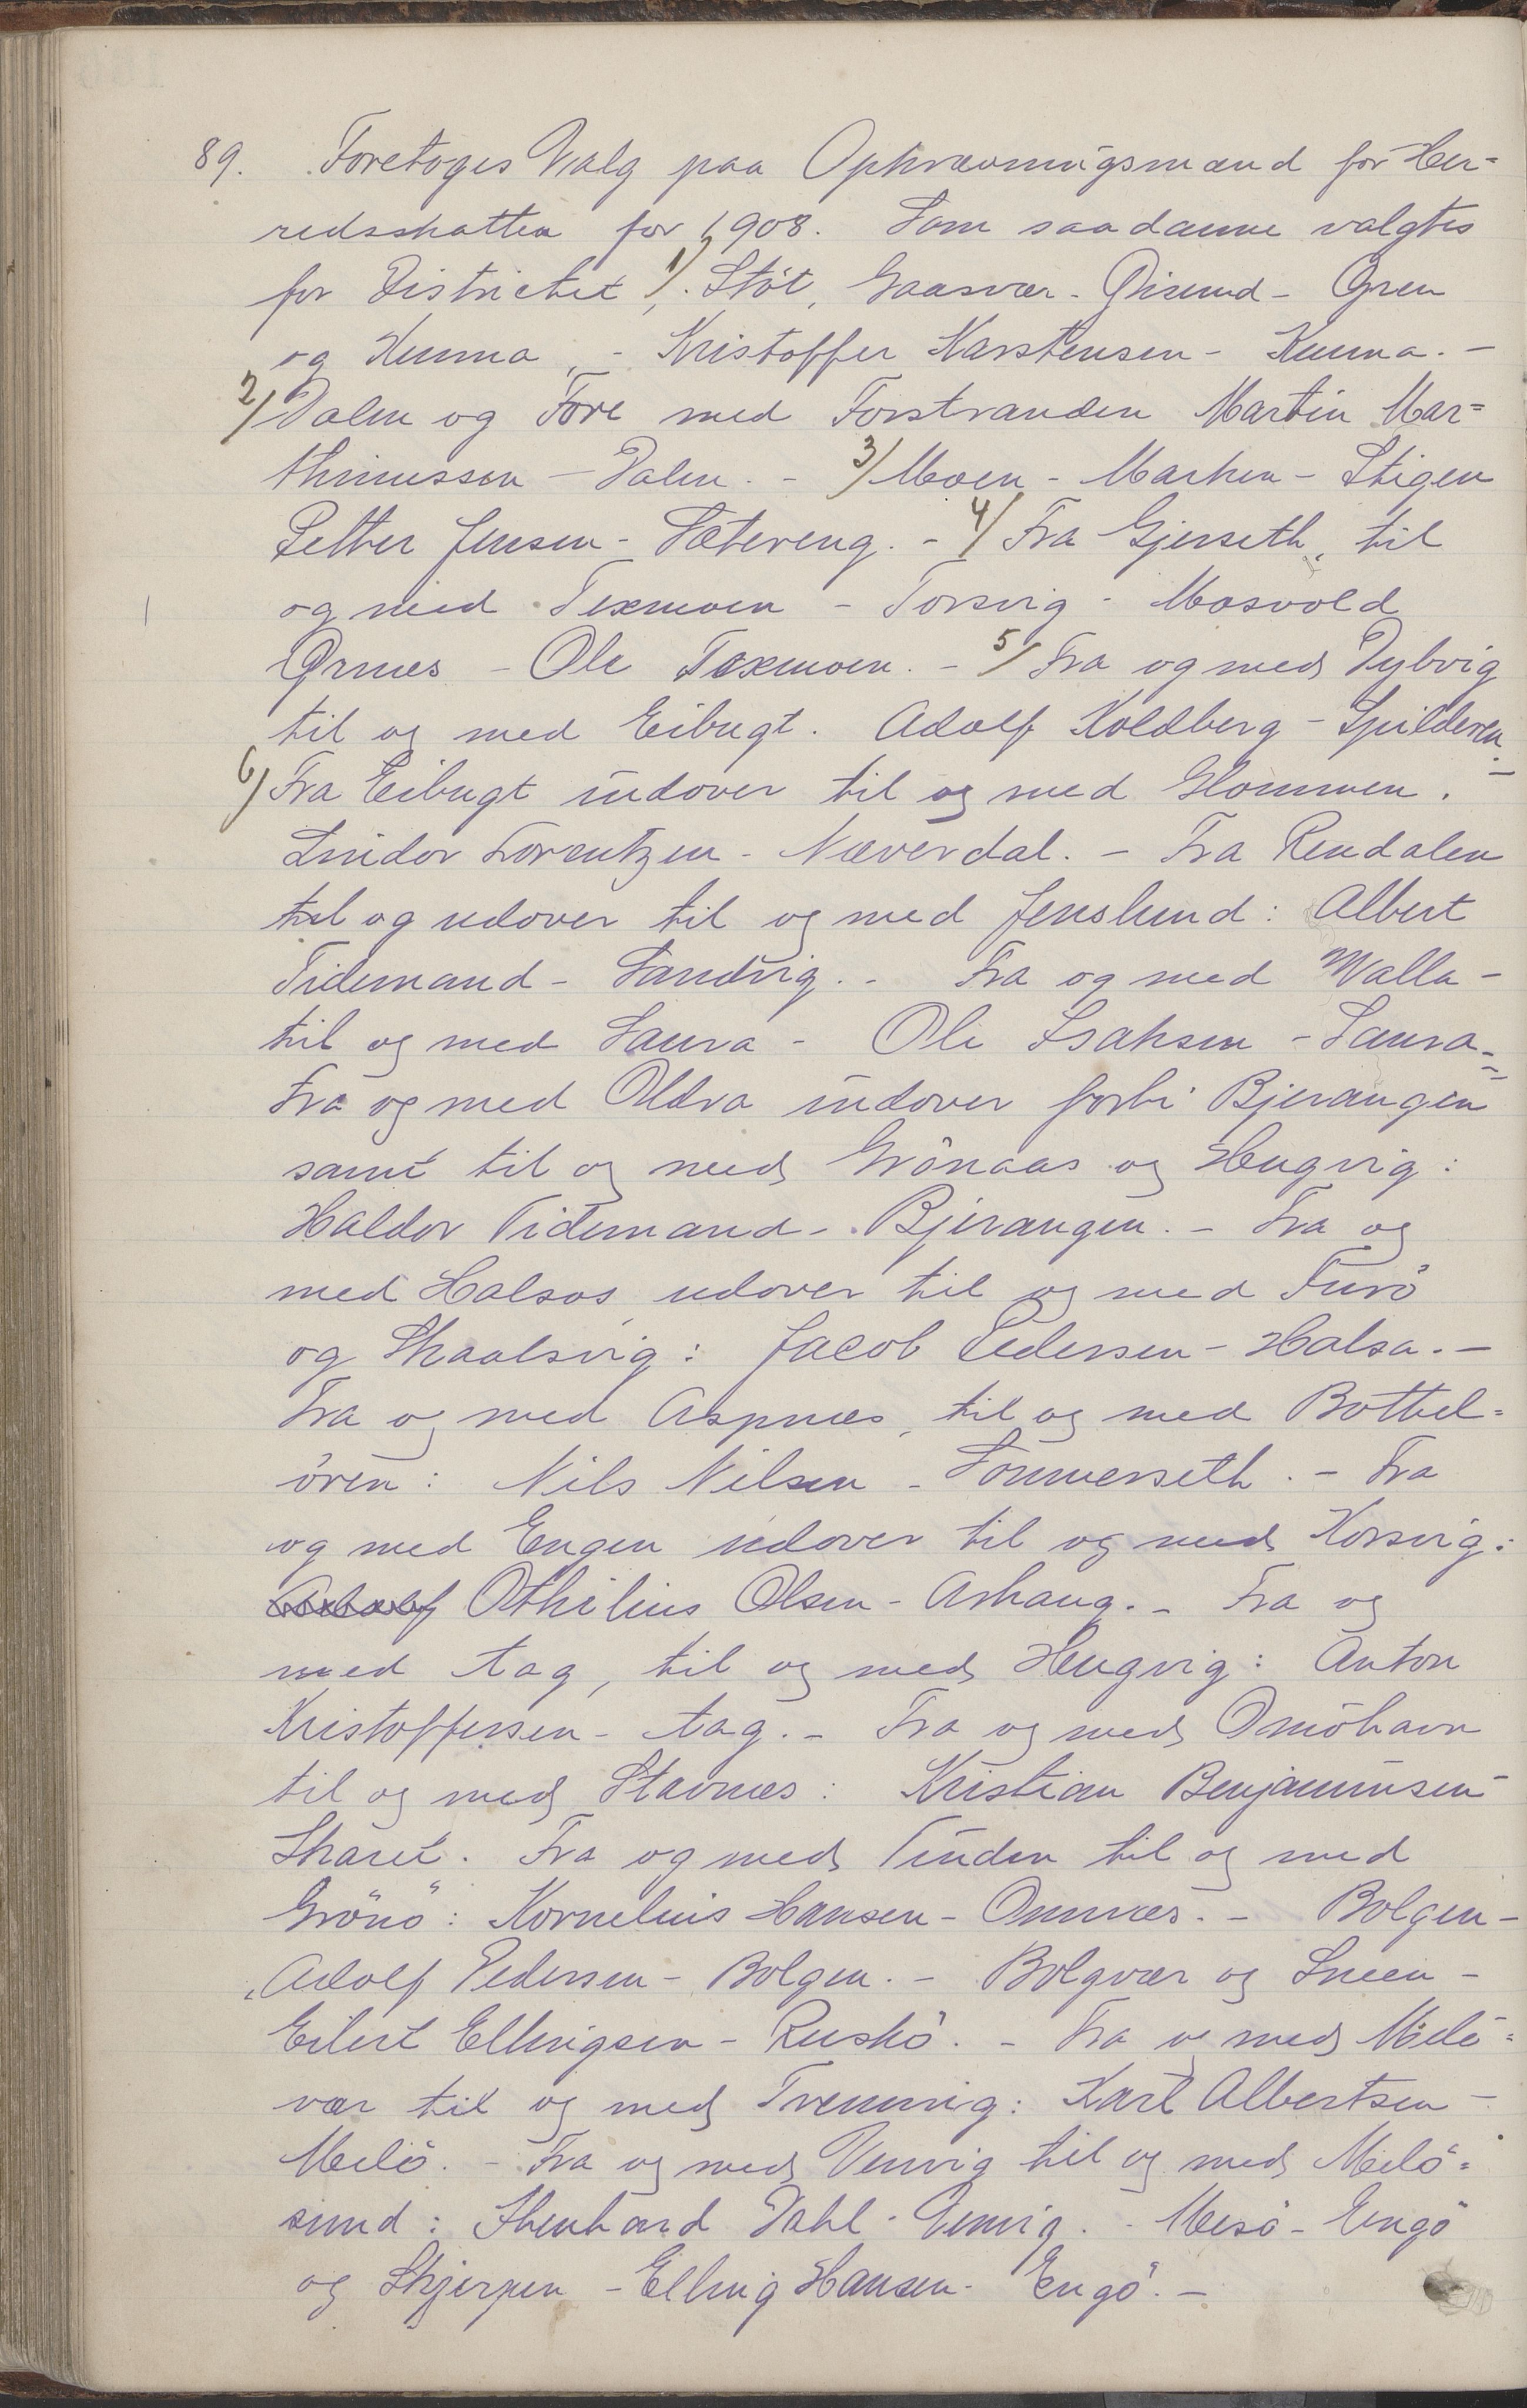 89. Foretoges Valg paa Opkrævningsmænd for Her=
redsskatten for 1908. Som saadanne valgtes
for Districtet 1/. Støt, Gaasvær - Øisund - Ören
og Kunna, - Kristoffer Karstensen - Kunna. -
2/ Dalen og Fore med Forstranden Martin Mar=
thinussen - Dalen. - 3/ Moen - Marken - Stigen
Petter Jensen - Sætereng. - 4/ Fra Gjerseth, til
og med Texmoen - Torsvig - Mosvold
Ørnes - Ole Texmoen. - 5/ Fra og med Dybvig
til og med Eibugt. Adolf Koldberg - Spilderen.
6/ Fra Eibugt indover til og med Glommen. -
Lindor Lorentzen - Næverdal. - Fra Rendalen
til og udover til og med Jenslund: Albert
Tidemand - Sandvig. - Fra og med Walla -
til og med Saura - Ole Isaksen - Saura. -
Fra og med Oldra indover forbi Bjerangen
samt til og med Grönaas og Hugvig:
Haldor Tidemand - Bjerangen. - Fra og
med Halsos udover til og med Furö
og Skaalsvig: Jacob Pedersen - Halsa. -
Fra og med Aspnes, til og med Bottel=
ören: Nils Nilsen - Sommerseth. - Fra
og med Engen udover til og med Korsvig:
Othilius Olsen - Åshaug. - Fra og
med Aag, til og med Hugvig: Anton
Kristoffersen - Aag. - Fra og med Omöhavn
til og med Stavnes: Kristian Benjaminsen -
Skaret. Fra og med Tinden til og med
Grönö: Kornelius Hansen - Omnes. - Bolgen -
Adolf Pedersen - Bolgen. - Bolgvær og Sneen -
Eilert Ellingsen -Ruskö. - Fra og med Melö=
vær til og med Trenvig: Karl Albertsen -
Melö. - Fra og med Venvig til og med Melö=
sund: Ehenhard Dahl - Venvig. - Mesö - Engö
og Skjerpen - Elling Hansen - Engö. -